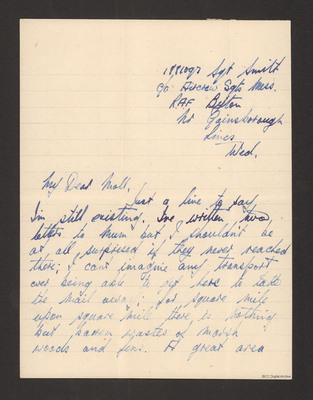 1881097 Sgt Smith
C/o Aircrew Sgts Mess.
RAF Blyton
Nr Gainsborough
Lincs
Wed.
My Dear Moll,
Just a line to say
I'm still existing. I've written two
letters to Mum but I shouldn't be
at all surprised if they never reached
there; I cant imagine any transport
ever being able to get here to take
the mail away; for square mile
upon square mile there is nothing
but barren wastes of marsh
woods and fens. A great area
IBCC Digital Archive